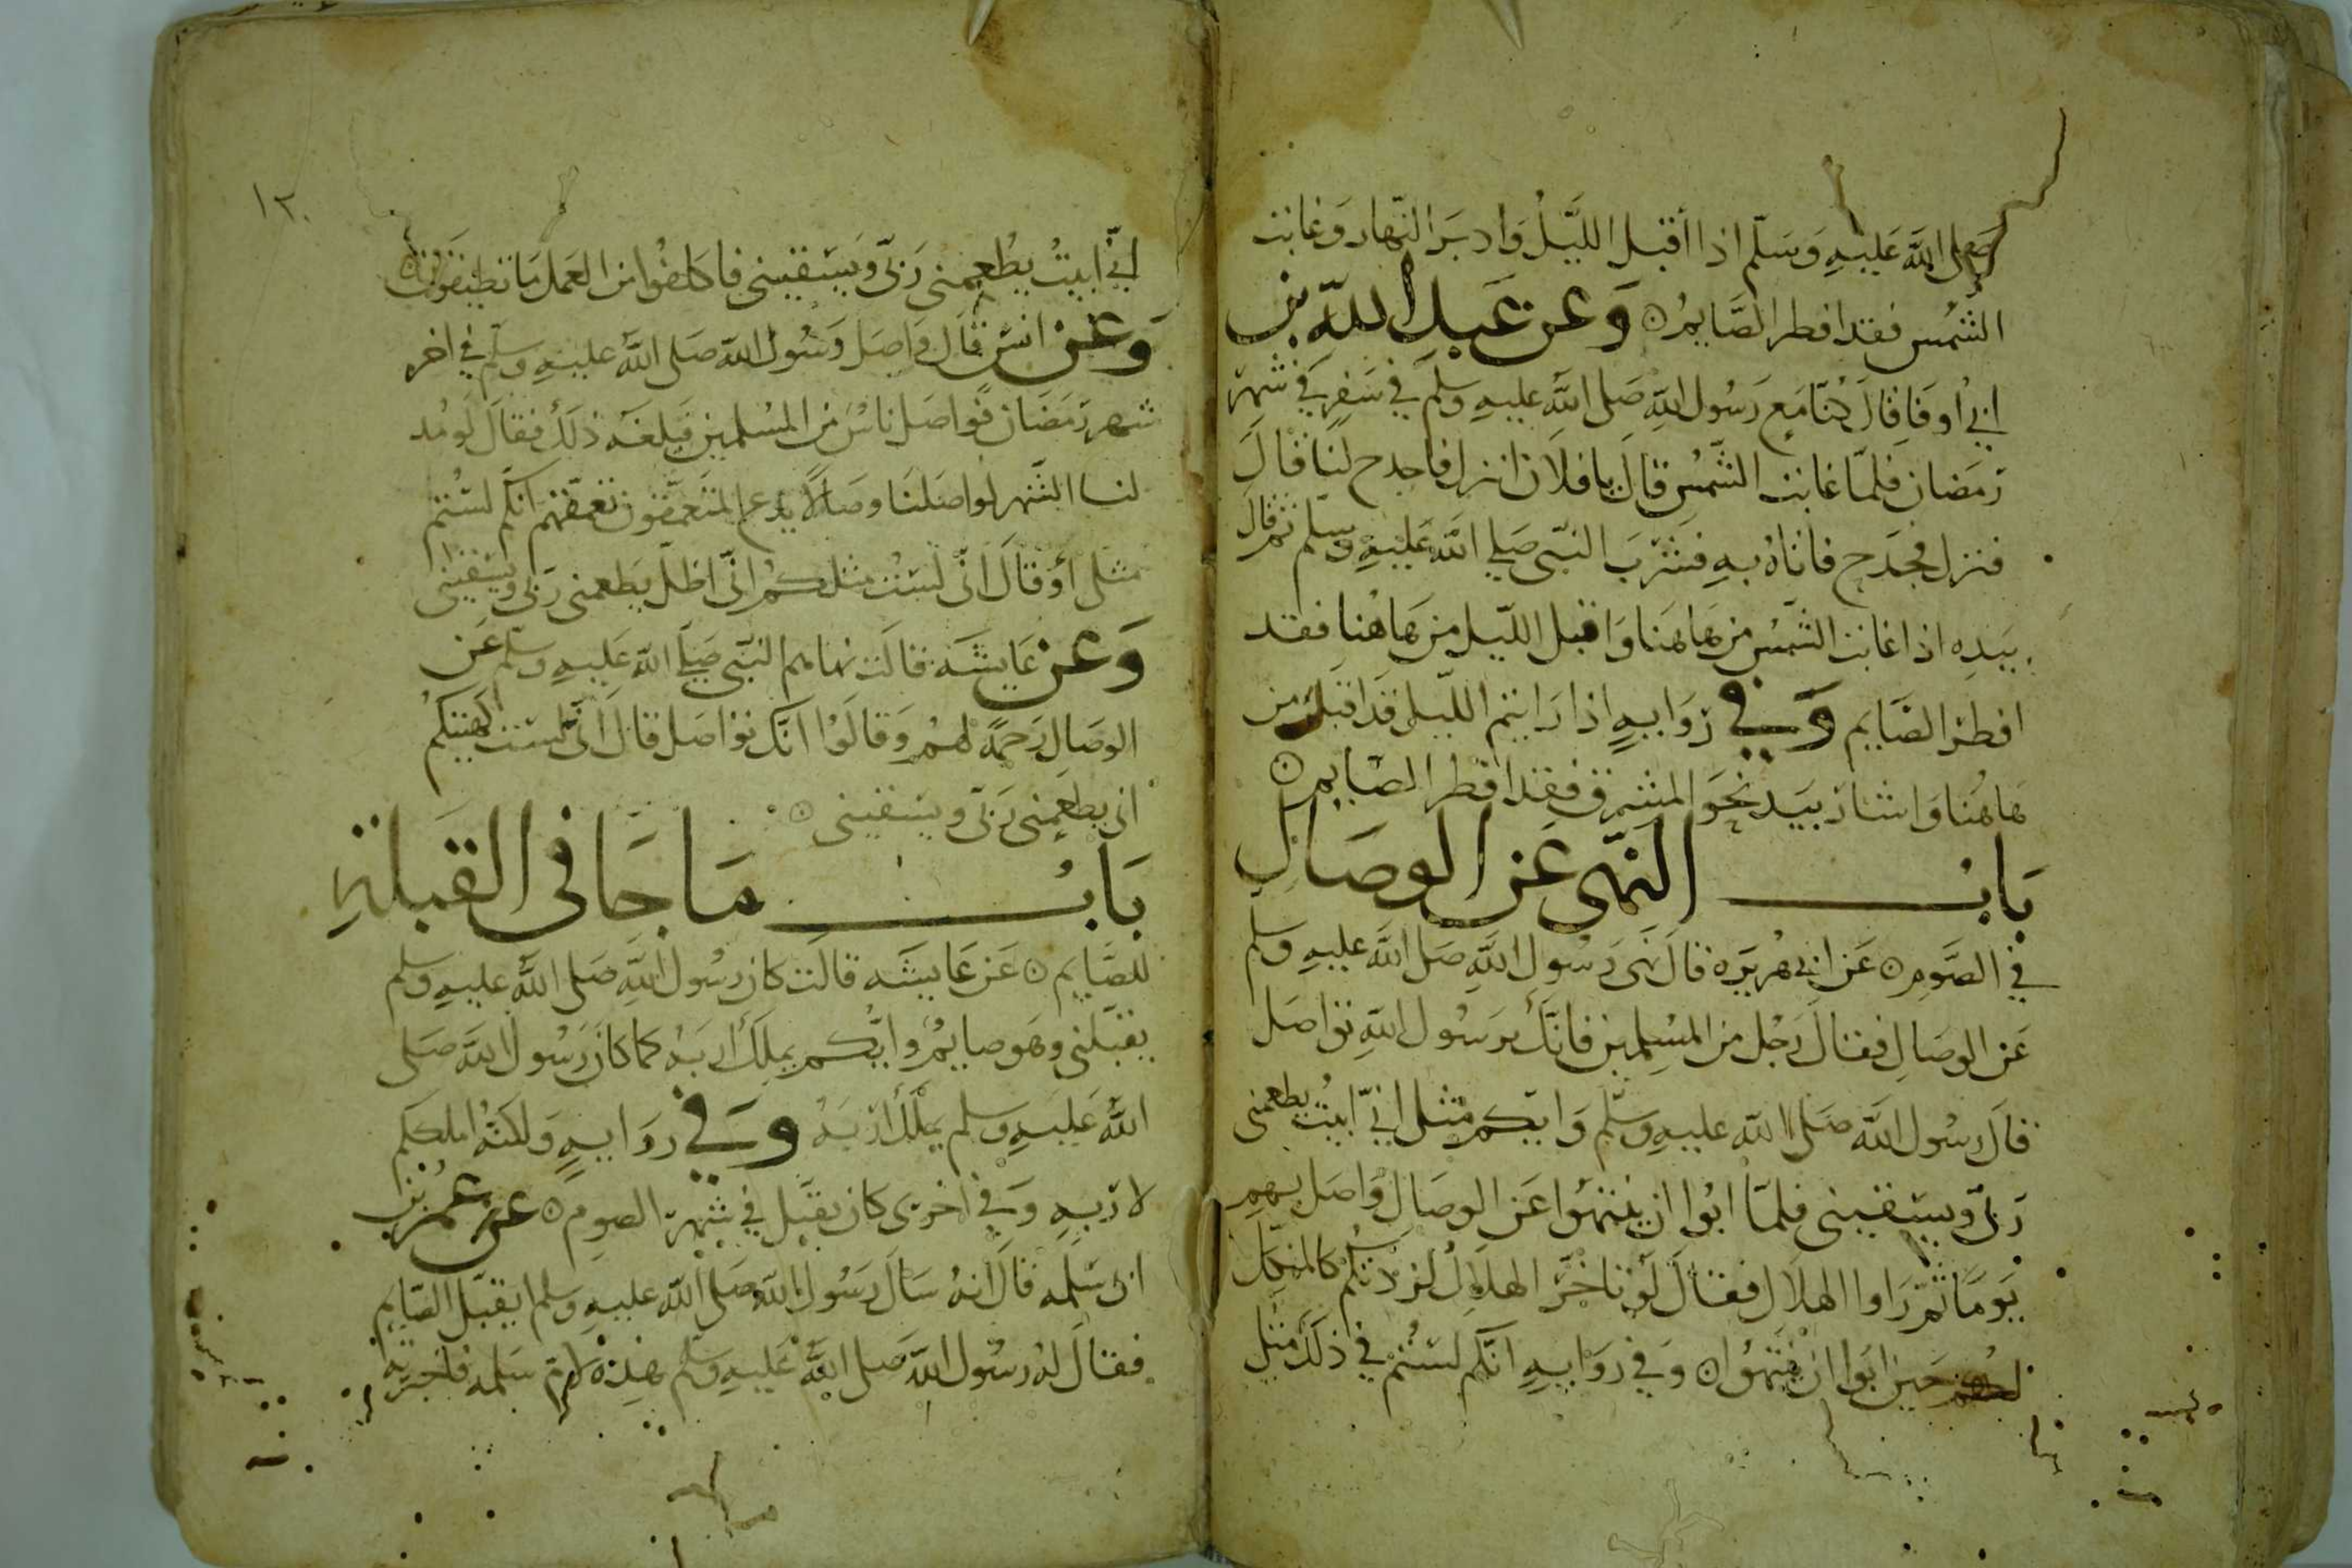 صلى الله عليه وسلم اذا أقبل الليل وادبر النهار وغابت
الشمس فقد افطر الصايم وعن عبد الله بن
ابي أوفا قال كنا مع رسول الله صلى الله عليه وسلم في سفر في شهر
رمضان فلما غابت الشمس قال يا فلان انزل فاجدح لنا قال
فنزل فجدح فاتاه به فشرب النبي صلى الله عليه وسلم ثم قال
بيده اذا غابت الشمس من هاهنا واقبل الليل من هاهنا فقد
افطر الصايم وفي رواية اذا رايتم الليل قد اقبل من
هاهنا واشار بيده نحو المشرق فقد افطر الصايم
باب النهى عن الوصال
في الصوم عن ابي هريرة قال نهى رسول الله صلى الله عليه وسلم
عن الوصال فقال رجل من المسلمين فانك يرسول الله تواصل
قال رسول الله صلى الله عليه وسلم وايكم مثلى اني ابيت يطعمنى
ربى ويسقينى فلما ابوا ان ينتهوا عن الوصال واصل بهم
يوما ثم راوا الهلال فقال لو تاخر الهلال لزدتكم كالمنكل
لهم حين ابوا ان ينتهوا وفي رواية انكم لستم في ذلك مثلي
١٢٠
اني ابيت يطعمنى ربى ويسقينى فاكلفوا من العمل ما تطيقون
وعن انس قال واصل رسول الله صلى الله عليه وسلم في اخر
شهر رمضان فواصل ناس من المسلمين فبلغه ذلك فقال لو مد
لنا الشهر لواصلنا وصالا يدع المتعمقون تعمقهم انكم لستم
مثلى أو قال انى لست مثلكم انى اظل يطعمنى ربى ويسقينى
وعن عايشه قالت نهاهم النبى صلى الله عليه وسلم عن
الوصال رحمة لهم وقالوا انك تواصل قال انى لست كهيئتكم
انى يطعمنى ربى ويسقينى
باب ما جا في القبلة
للصايم عن عايشه قالت كان رسول الله صلى الله عليه وسلم
يقبلنى وهو صايم وايكم يملك اربه كما كان رسول الله صلى
الله عليه وسلم يملك اربه وفي رواية ولكنه املككم
لاربه وفي اخرى كان يقبل في شهر الصوم عن عمر بن
ابى سلمه قال انه سال رسول الله صلى الله عليه وسلم ايقبل الصايم
فقال له رسول الله صلى الله عليه وسلم هذه لام سلمه فاخبرته